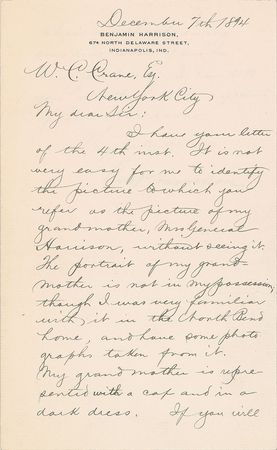 December 7th 1894
BENJAMIN HARRISON,
674 NORTH DELAWARE STREET,
INDIANAPOLIS, IND.
Wm. C. Crane, Esq.
New York City
My dear Sir:
I have your letter
of the 4th inst. It is not
very easy for me to identify
the picture to which you
refer as the picture of my
grandmother, Mrs General
Harrison, without seeing it.
The portrait of my grand-
mother is not in my possession,
though I was very familiar
with it in the North Bend
home, and have some photo-
graphs taken from it.
My grandmother is repre
sented with a cap and in a
dark dress. If you will